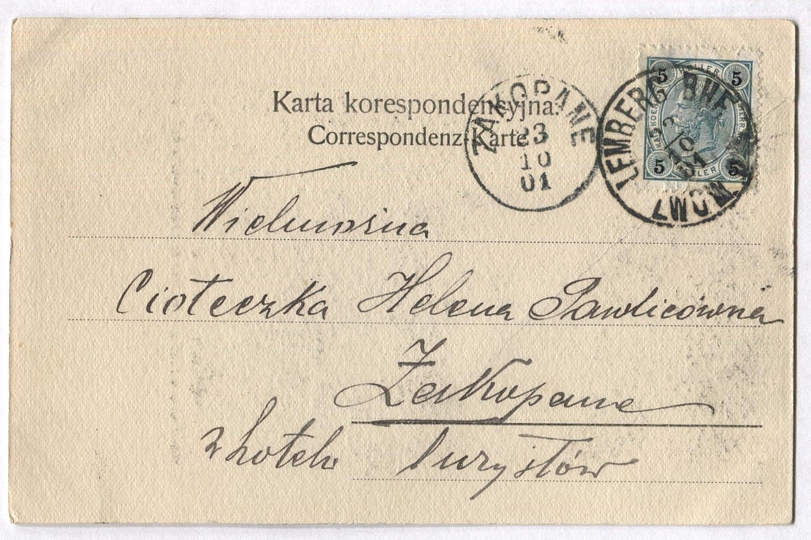 Karta korespondencyjna.
Correspondenz-Karte
ZAKOPANE
23
10
01
LEMBERG BHF
10
01
LWÓW
5 5
5 5
Wielmożna
Cioteczka Helena Pawlicówna
Zakopane
w hotelu Turystów